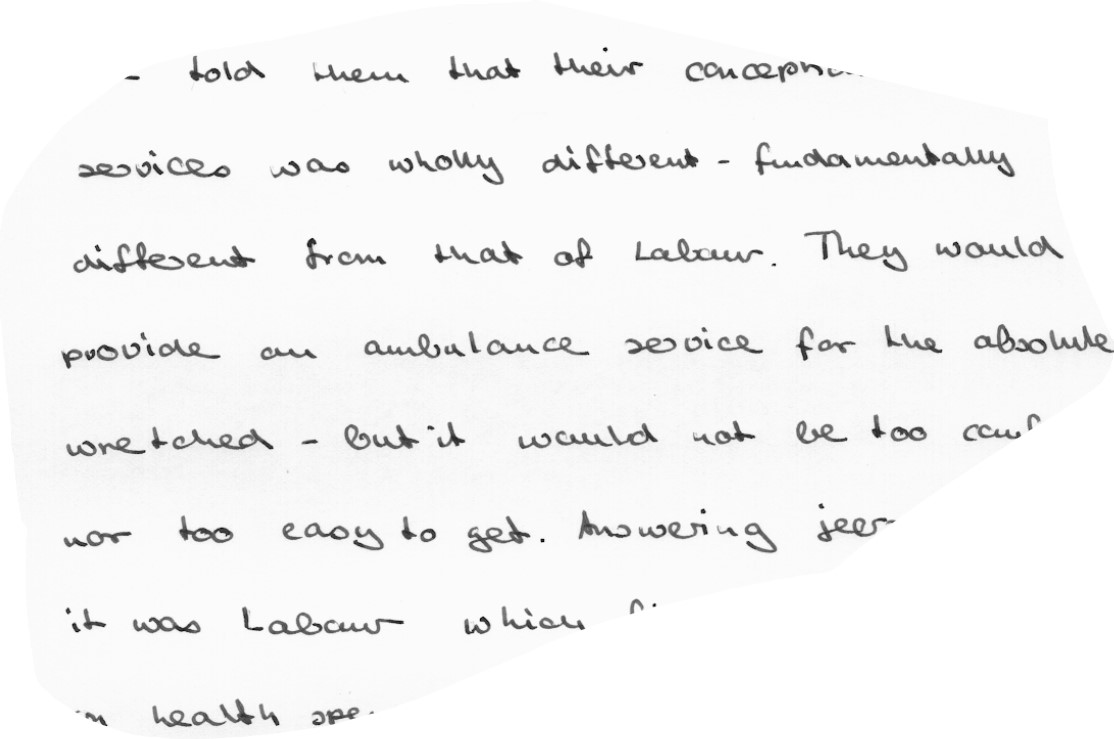 - told them that their
services was wholly different - fundamentally
different from that of Labour. They would
provide an ambulance service for the absolute
wretched - but it would not be too
nor too easy to get. Answering
it was Labour which
health